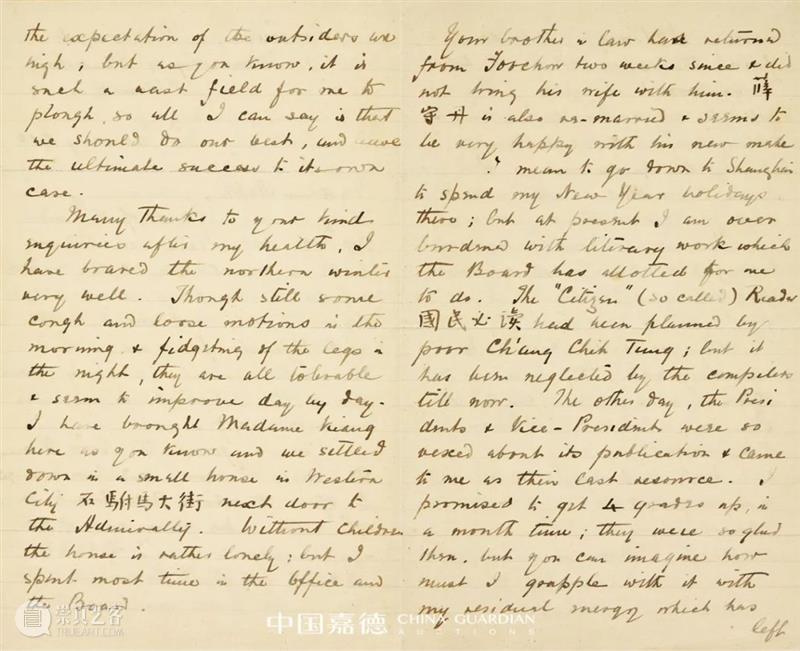 the expectation of the outsiders are
high; but as you know, it is
such a vast field for me to
plough, so all I can say is that
we should do our best, and leave
the ultimate success to its own
case.
Many thanks to your kind
inquiries after my health, I
have braved the northern winter
very well. Though still some
cough and loose motions in the
morning & fidgeting of the legs in
the night, they are all tolerable
& seem to improve day by day.
I have brought Madame Kiang
here as you know and we settled
down in a small house in Western
City 石駙馬大街 next door to
the Admiralty. Without children
the house is rather lonely; but I
spent most time in the Office and
the Board.
Your brother in law have returned
from Foochow two weeks since & did
not bring his wife with him. 薛
守丹 is also re-married & seems to
be very happy with his new mate
? mean to go down to Shanghai
to spend my New Year holidays
there; but at present I am over
burdened with literary work which
the Board has allotted for me
to do. The "Citizen" (so called) Reader
國民必讀 had been planned by
poor Chang Chih Tung; but it
has been neglected by the compilers
till now. The other day, the Presi
dents & Vice-Presidents were so
vexed about its publication & came
to me as their last resource. I
promised to get 4 grades up, in
a month time; they were so glad
then. but you can imagine how
must I grapple with it with
my residual energy which has
left
崇真艺客
TRUEART.COM
中国嘉德 CHINA GUARDIAN
AUCTIONS